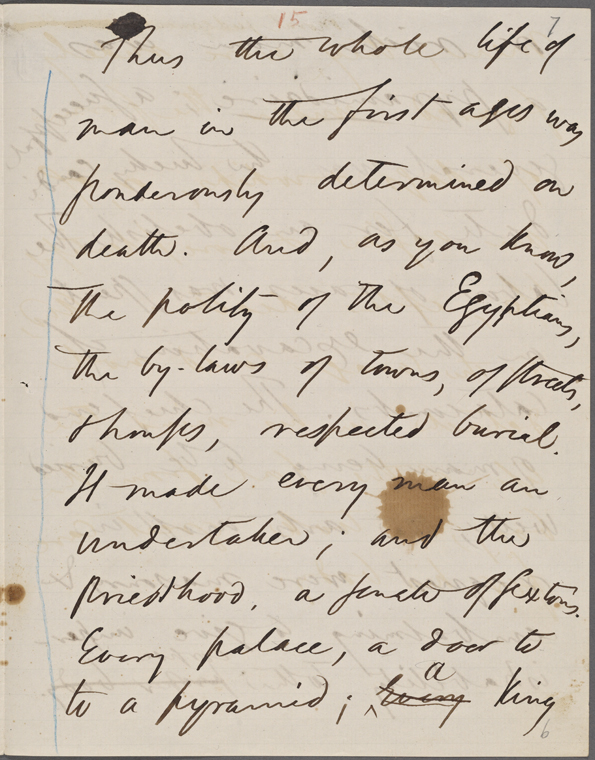 15 7
Thus the whole life of
man in the first ages was
ponderously determined on
death. And, as you know,
the polity of the Egyptians,
the by-laws of towns, of streets,
& houses, respected burial.
It made every man an
undertaker; and the
priesthood, a senate of sextons.
Every palace, a door to
to a pyramid; ^ a ~~Every~~ King
6